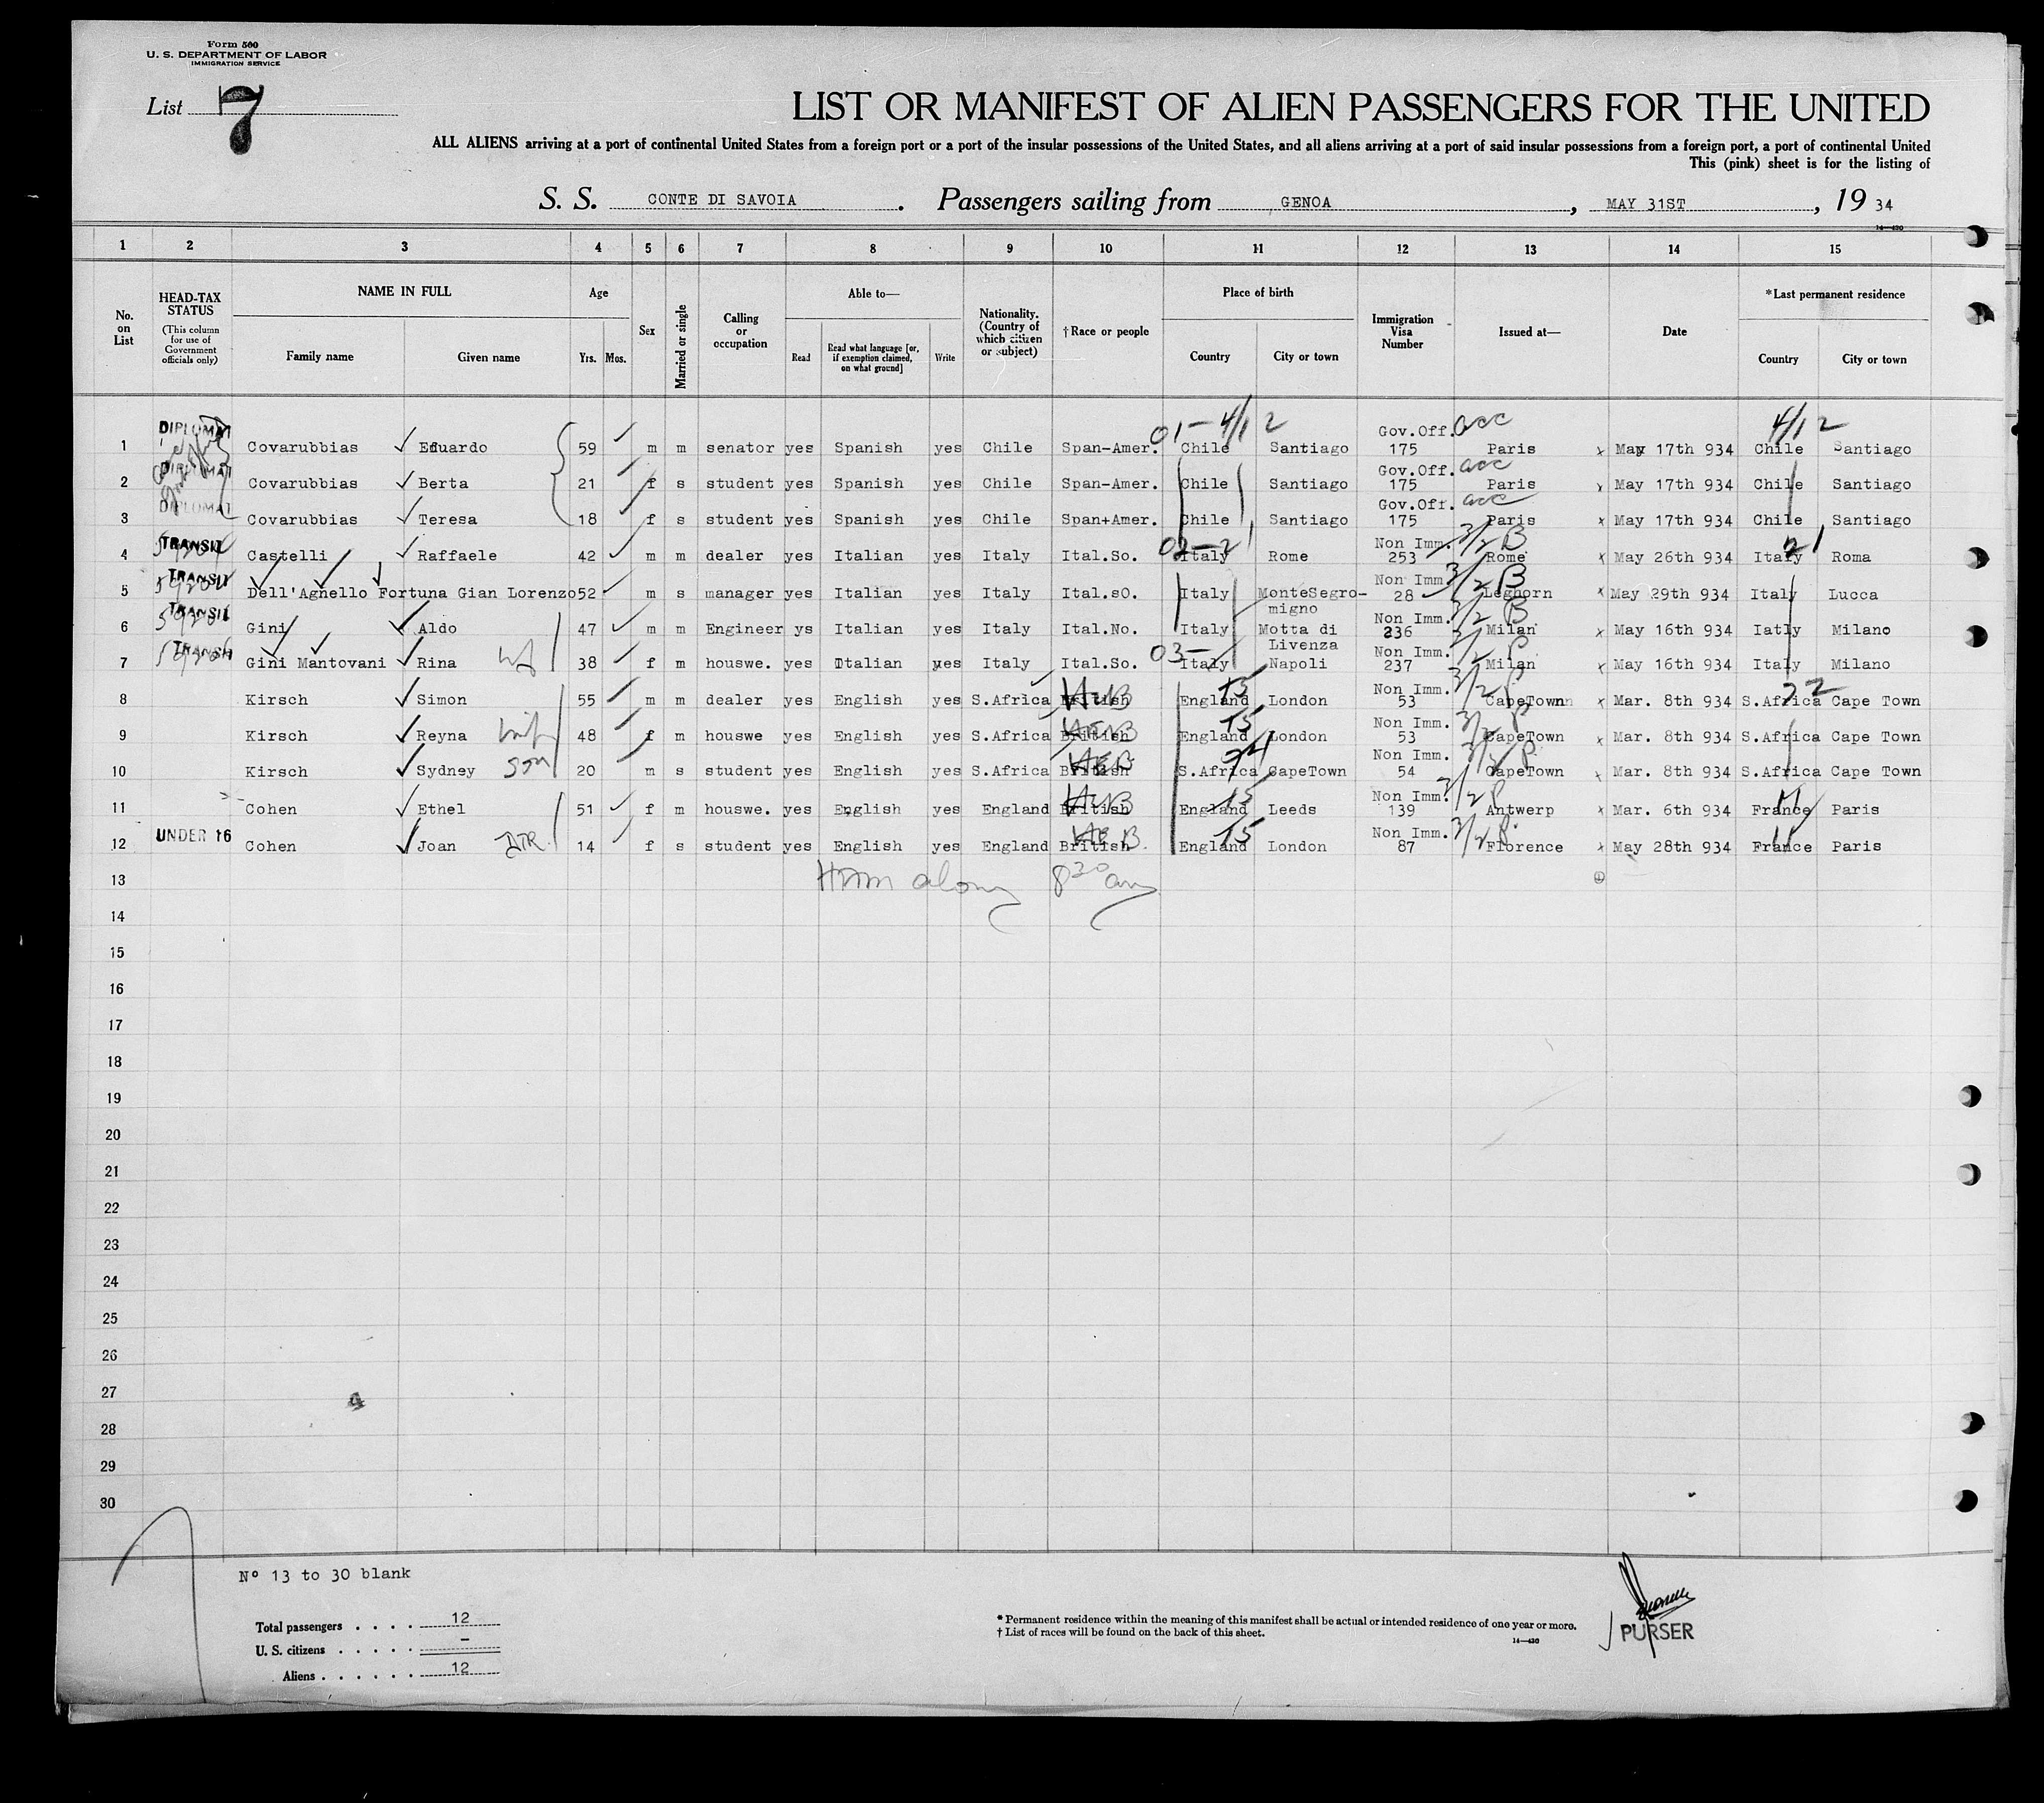 Form 500
U. S. DEPARTMENT OF LABOR
IMMIGRATION SERVICE
List 7
LIST OR MANIFEST OF ALIEN PASSENGERS FOR THE UNITED
ALL ALIENS arriving at a port of continental United States from a foreign port or a port of the insular possessions of the United States, and all aliens arriving at a port of said insular possessions from a foreign port, a port of continental United
This (pink) sheet is for the listing of
S. S. CONTE DI SAVOIA. Passengers sailing from GENOA, MAY 31ST, 19 34
14—430
1 2 3 4 5 6 7 8 9 10 11 12 13 14 15
No. on List
HEAD-TAX STATUS (This column for use of Government officials only)
NAME IN FULL
Family name Given name
Age
Yrs. Mos.
Sex
Married or single
Calling or occupation
Able to—
Read Read what language [or, if exemption claimed, on what ground] Write
Nationality. (Country of which citizen or subject)
†Race or people
Place of birth
Country City or town
Immigration Visa Number
Issued at—
Date
*Last permanent residence
Country City or town
01-4/12 4/12
1 DIPLOMAT Covarubbias Eduardo 59 m m senator yes Spanish yes Chile Span-Amer. Chile Santiago Gov.Off. 175 Paris May 17th 934 Chile Santiago
2 DIPLOMAT Covarubbias Berta 21 f s student yes Spanish yes Chile Span-Amer. Chile Santiago Gov.Off. 175 Paris May 17th 934 Chile Santiago
3 DIPLOMAT Covarubbias Teresa 18 f s student yes Spanish yes Chile Span+Amer. Chile Santiago Gov.Off. 175 Paris May 17th 934 Chile Santiago
4 TRANSIT Castelli Raffaele 42 m m dealer yes Italian yes Italy Ital.So. 02-21 Italy Rome Non Imm. 253 3/2 B Rome May 26th 934 Italy 21 Roma
5 TRANSIT Dell'Agnello Fortuna Gian Lorenzo 52 m s manager yes Italian yes Italy Ital.sO. Italy MonteSegro-migno Non Imm. 28 3/2 B Leghorn May 29th 934 Italy Lucca
6 TRANSIT Gini Aldo 47 m m Engineer ys Italian yes Italy Ital.No. Italy Motta di Livenza Non Imm. 236 3/2 B Milan May 16th 934 Iatly Milano
7 TRANSIT Gini Mantovani Rina wf 38 f m houswe. yes Italian yes Italy Ital.So. 03- Italy Napoli Non Imm. 237 3/2 P Milan May 16th 934 Italy Milano
8 Kirsch Simon 55 m m dealer yes English yes S.Africa British HEB England 15 London Non Imm. 53 3/2 P CapeTown Mar. 8th 934 S.Africa 22 Cape Town
9 Kirsch Reyna wife 48 f m houswe yes English yes S.Africa British HEB England 15 London Non Imm. 53 3/2 P CapeTown Mar. 8th 934 S.Africa Cape Town
10 Kirsch Sydney son 20 m s student yes English yes S.Africa British HEB S.Africa 24 CapeTown Non Imm. 54 3/2 P CapeTown Mar. 8th 934 S.Africa Cape Town
11 Cohen Ethel 51 f m houswe. yes English yes England British HEB England 15 Leeds Non Imm. 139 3/2 P Antwerp Mar. 6th 934 France 11 Paris
12 UNDER 16 Cohen Joan DTR. 14 f s student yes English yes England British HEB England 15 London Non Imm. 87 3/2 P. Florence May 28th 934 France 11 Paris
13 along 8 30 am
14
15
16
17
18
19
20
21
22
23
24
25
26
27
28
29
30
Nº 13 to 30 blank
Total passengers . . . . 12
U. S. citizens . . . . . –
Aliens . . . . . . 12
* Permanent residence within the meaning of this manifest shall be actual or intended residence of one year or more.
† List of races will be found on the back of this sheet.
14—430
PURSER